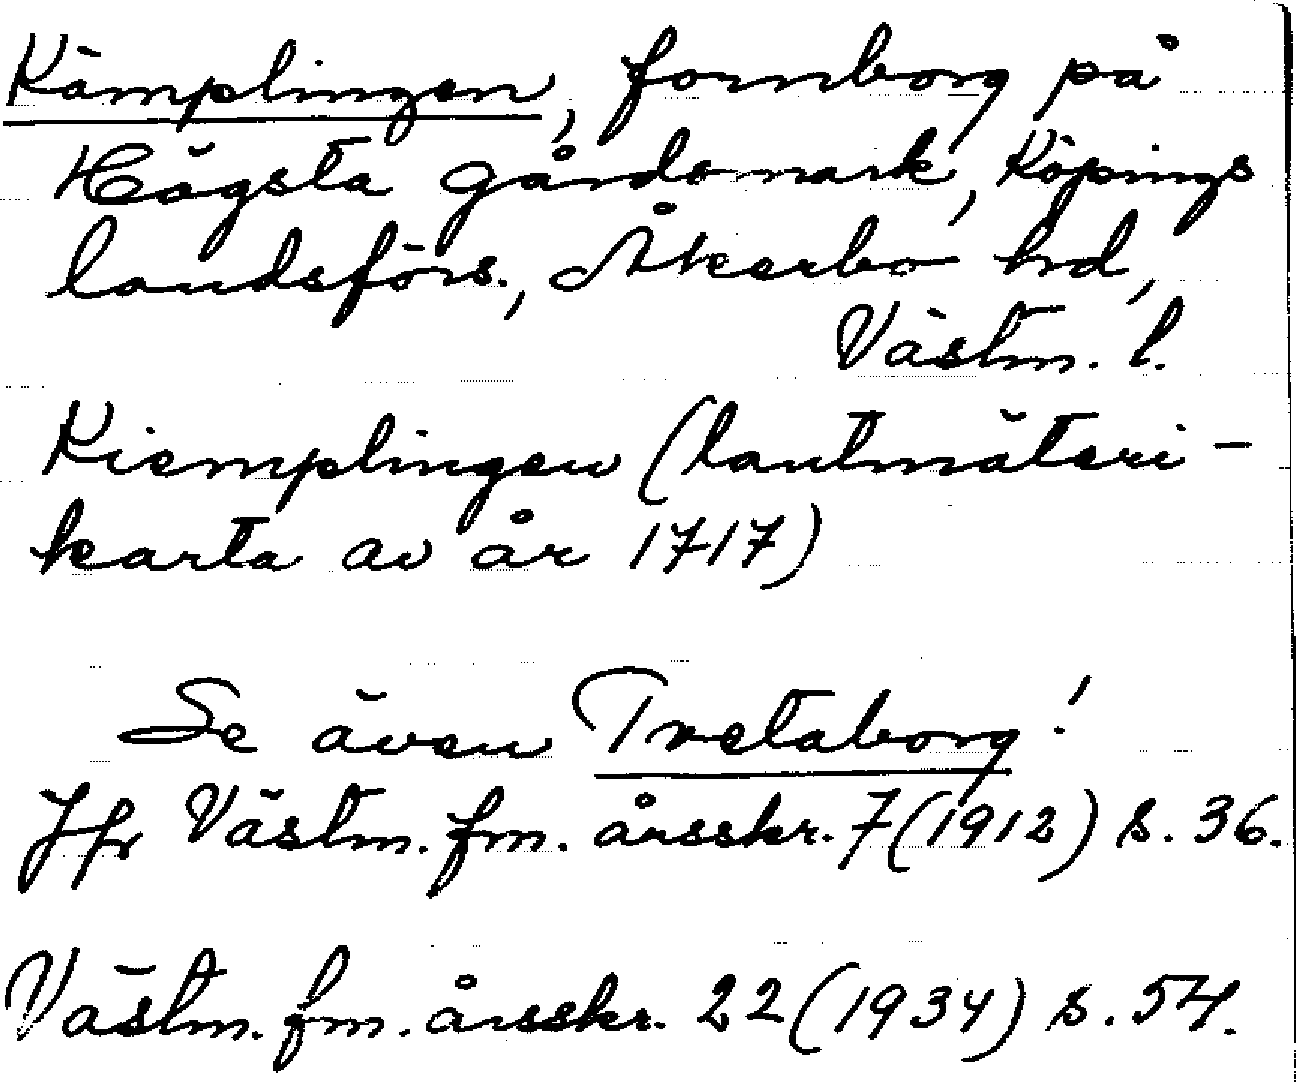 Kämplingen, fornborg på
Högsta gårdsmark, Köpings
landsförs., Åkerbo hd,
Västm. l.
Kiemplingen (lantmäteri-
karta av år 1717)
Se även Tretaborg!
Jfr Västm. fm. årsskr. 7 (1912) s. 36.
Västm. fm. årsskr. 22 (1934) s. 54.